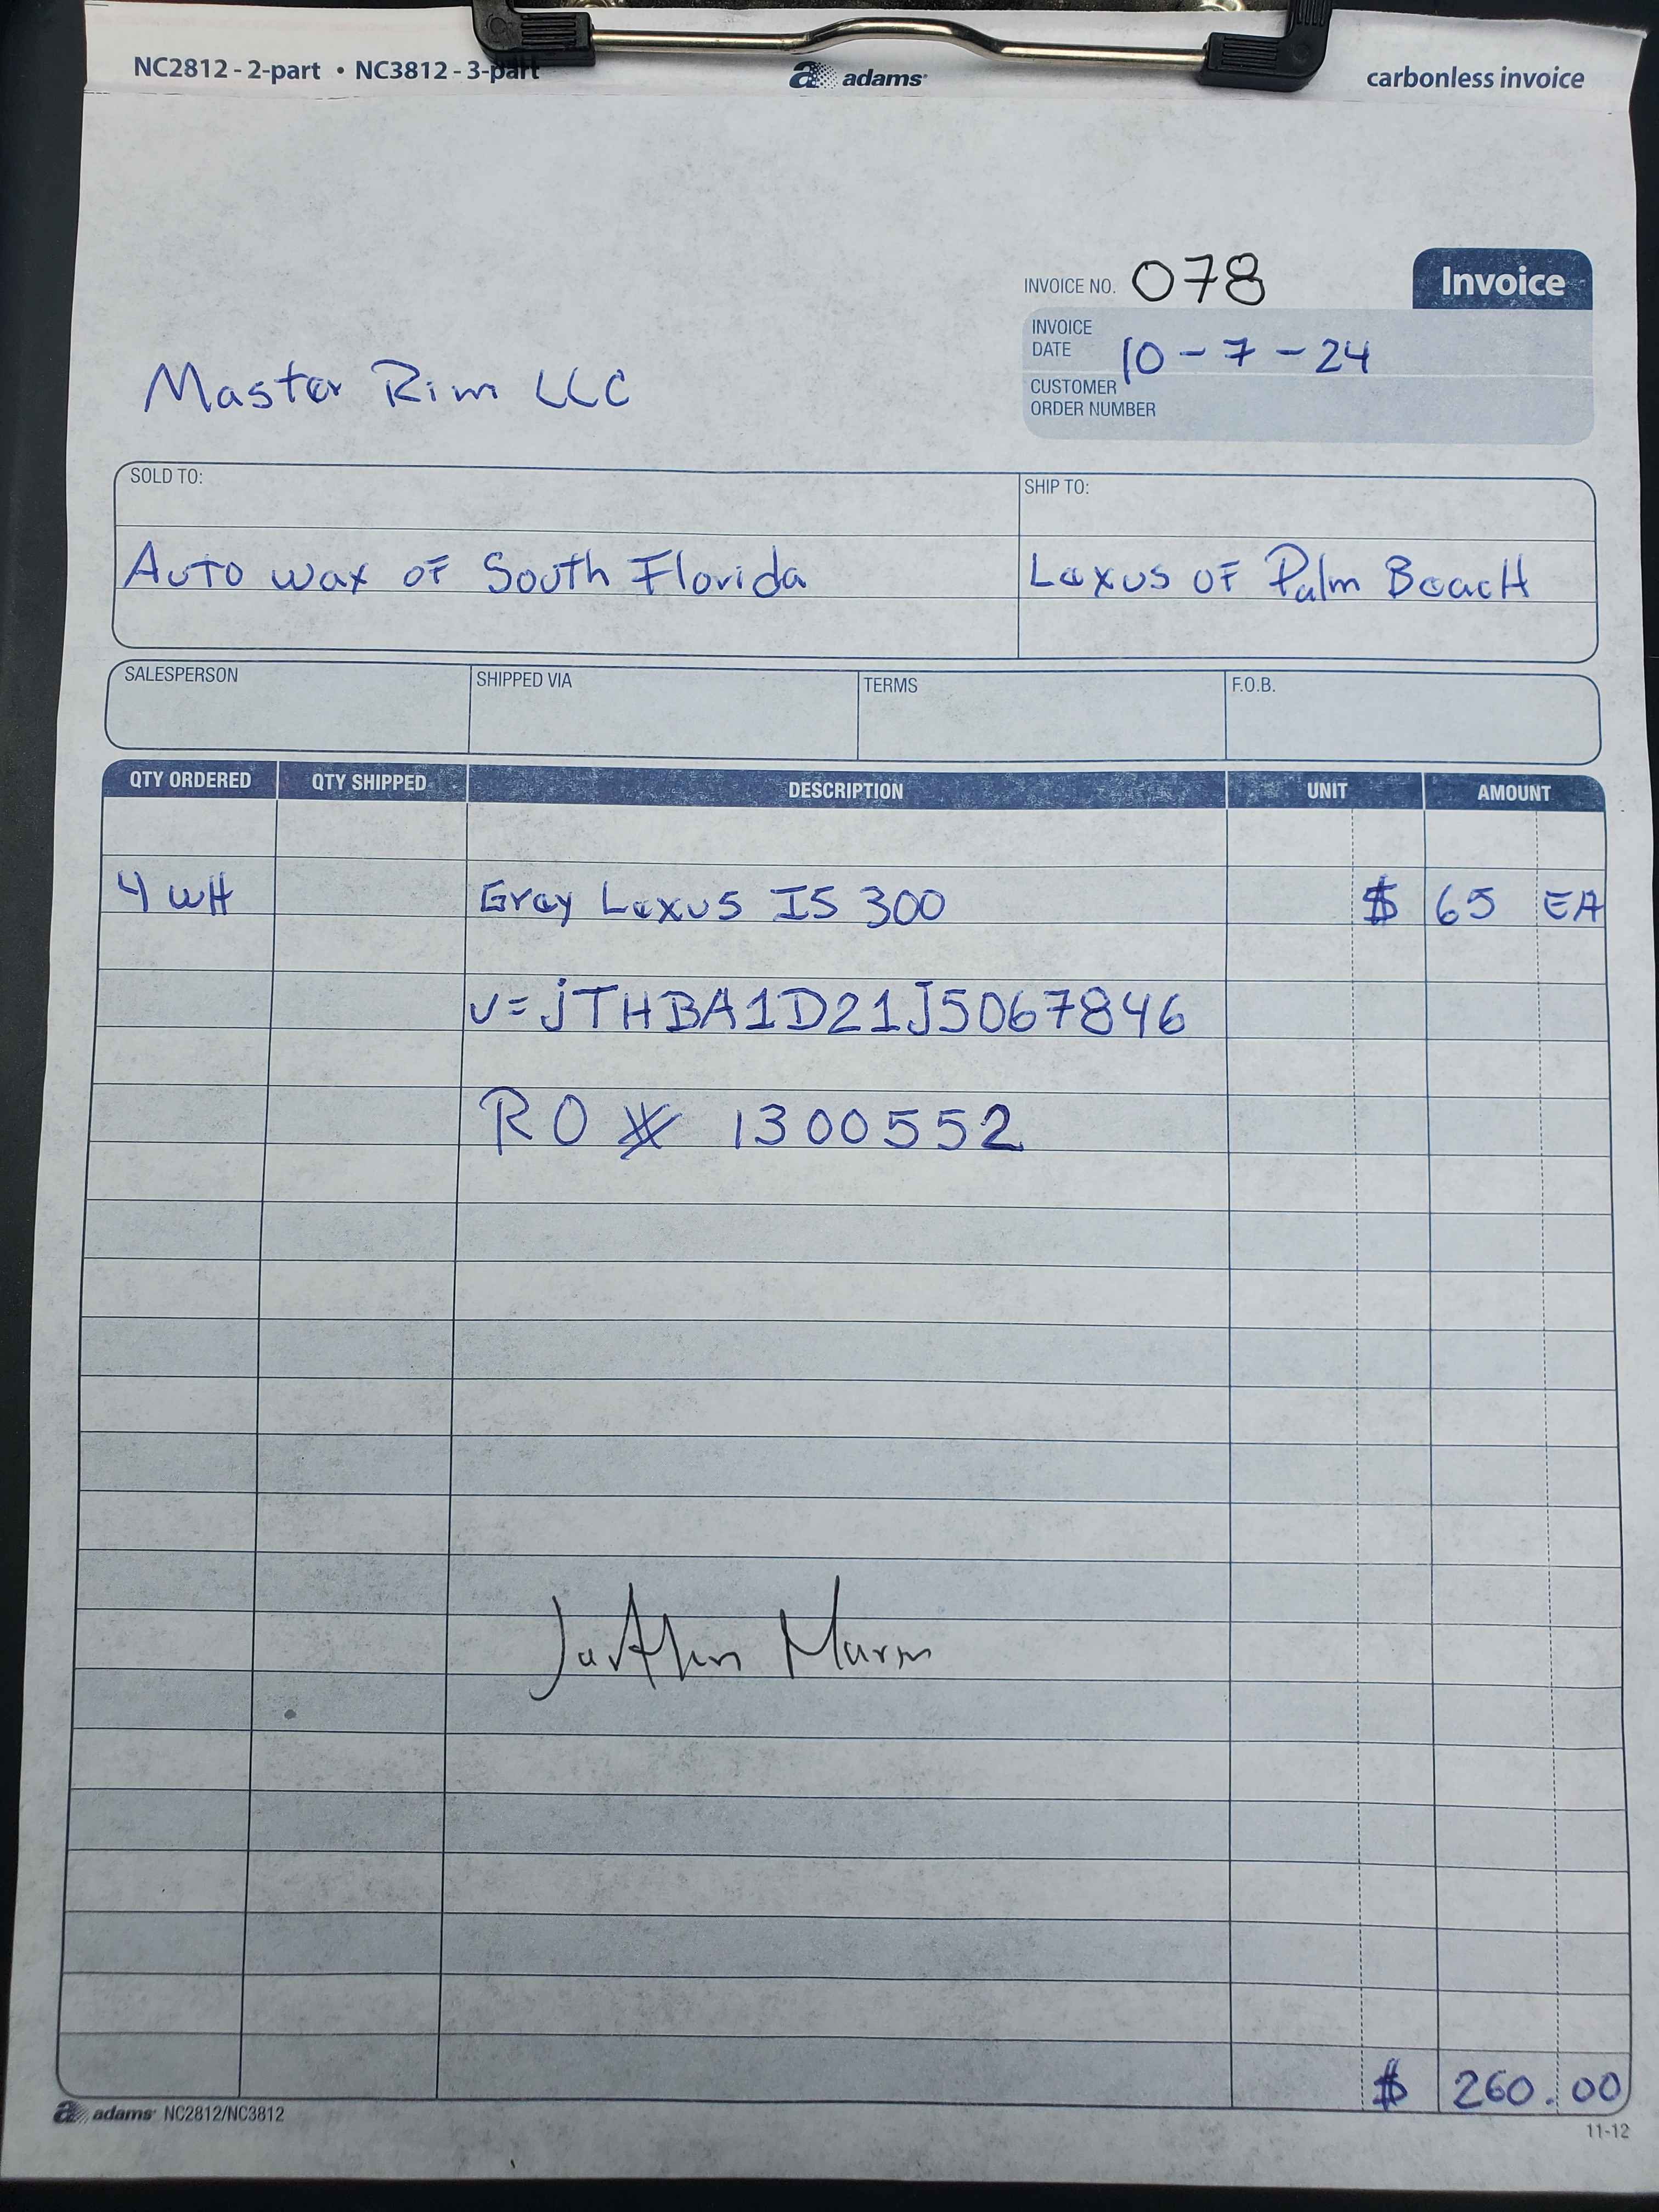 NC2812 - 2-part • NC3812 - 3-part adams carbonless invoice
INVOICE NO. 078 Invoice
INVOICE DATE 10-7-24
Master Rim LLC
CUSTOMER ORDER NUMBER
SOLD TO: SHIP TO:
Auto wax of South Florida Lexus of Palm Beach
SALESPERSON SHIPPED VIA TERMS F.O.B.
QTY ORDERED QTY SHIPPED DESCRIPTION UNIT AMOUNT
4 WH Gray Lexus IS 300 $ 65 EA
v=jTHBA1D21J5067846
RO # 1300552
$ 260.00
adams NC2812/NC3812
11-12